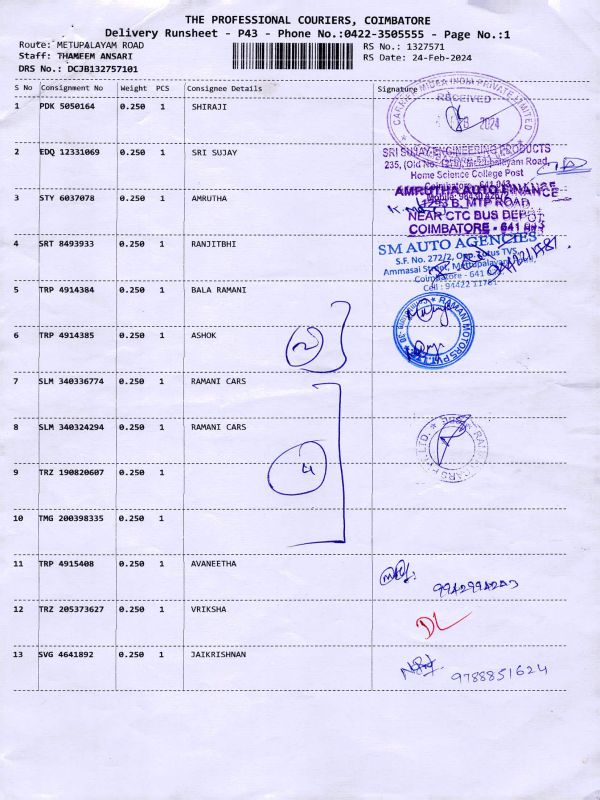 THE PROFESSIONAL COURIERS, COIMBATORE
Delivery Runsheet - P43 - Phone No.:0422-3505555 - Page No.:1
Route: METUPALAYAM ROAD
RS No.: 1327571
Staff: THAMEEM ANSARI
RS Date: 24-Feb-2024
DRS No.: DCJB132757101
S No Consignment No Weight PCS Consignee Details Signature
1 PDK 5050164 0.250 1 SHIRAJI
RECEIVED
2024
2 EDQ 12331069 0.250 1 SRI SUJAY
SRI SUJAY ENGINEERING PRODUCTS
Home Science College Post
3 STY 6037078 0.250 1 AMRUTHA
AMRUTHA AUTO FINANCE
1253 B, MTP ROAD
NEAR CTC BUS DEPOT
COIMBATORE - 641
4 SRT 8493933 0.250 1 RANJITBHI
SM AUTO AGENCIES
S.F. No. 272/2, Opp. Lotus TVS,
Ammasai Street, Mettupalayam
Coimbatore - 641
Cell : 94422 11781
5 TRP 4914384 0.250 1 BALA RAMANI
RAMANI MOTORS PVT. LTD
6 TRP 4914385 0.250 1 ASHOK
2
7 SLM 340336774 0.250 1 RAMANI CARS
8 SLM 340324294 0.250 1 RAMANI CARS
9 TRZ 190820607 0.250 1
4
10 TMG 200398335 0.250 1
11 TRP 4915408 0.250 1 AVANEETHA
12 TRZ 205373627 0.250 1 VRIKSHA
DL
13 SVG 4641892 0.250 1 JAIKRISHNAN
9788851624